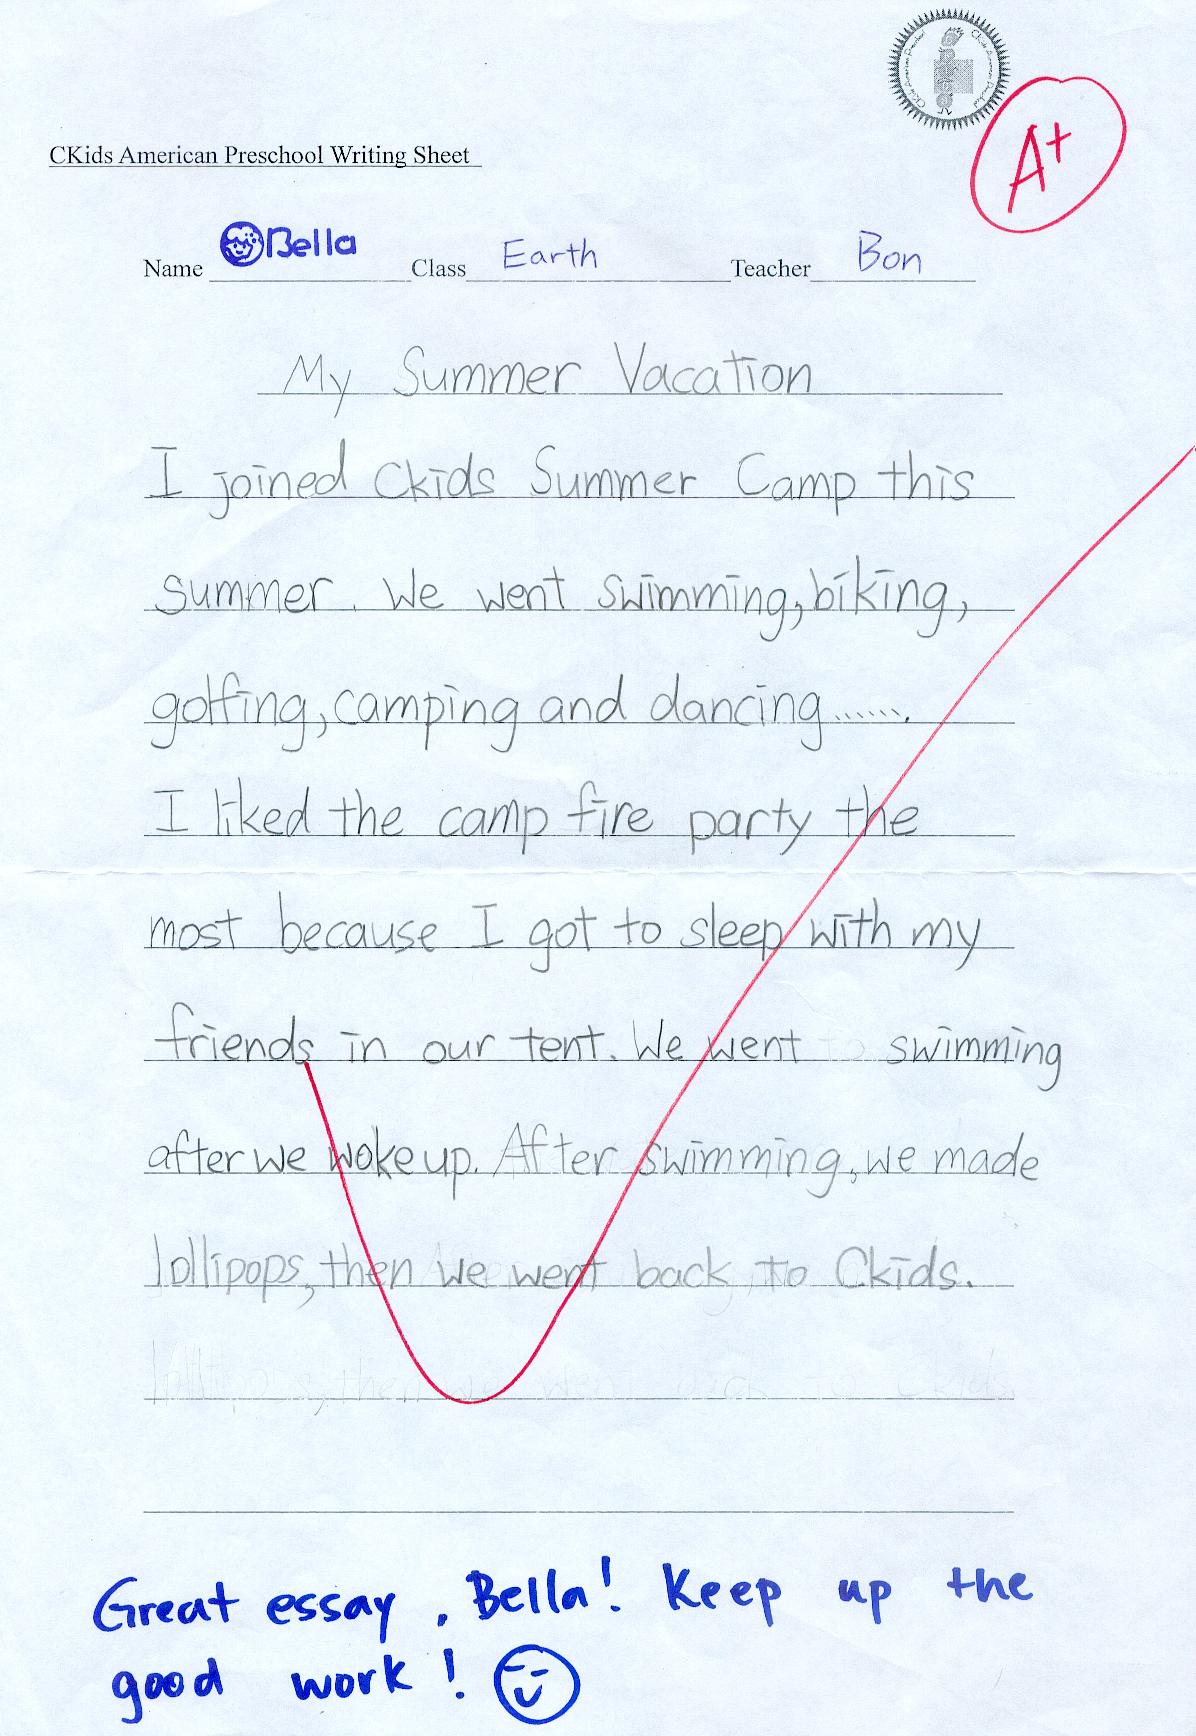 CKids American Preschool Writing Sheet
A+
Name Bella Class Earth Teacher Bon
My Summer Vacation
I joined Ckids Summer Camp this
summer. We went swimming, biking,
golfing, camping and dancing.......
I liked the camp fire party the
most because I got to sleep with my
friends in our tent. We went swimming
after we woke up. After swimming, we made
lollipops, then we went back to Ckids.
Great essay, Bella! Keep up the
good work!